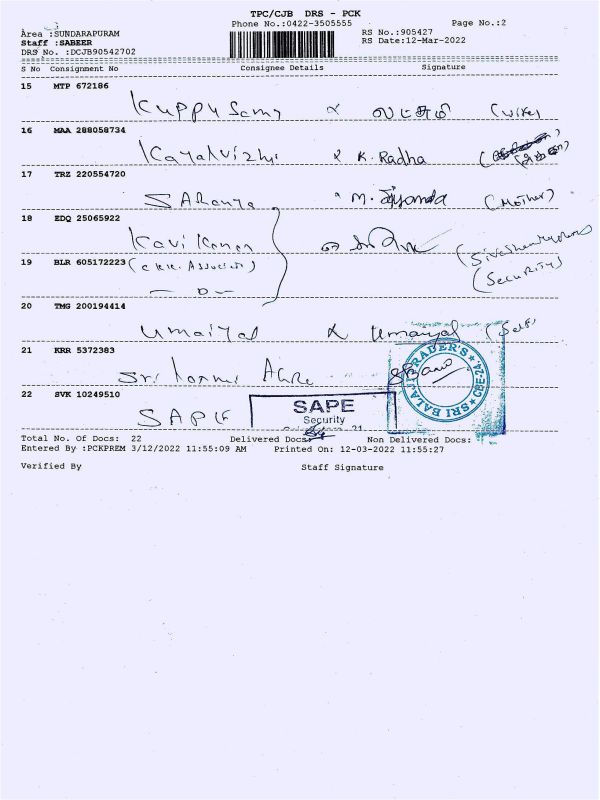 TPC/CJB DRS - PCK
Phone No.:0422-3505555 Page No.:2
Area :SUNDARAPURAM RS No.:905427
Staff :SABEER RS Date:12-Mar-2022
DRS No. :DCJB90542702
S No Consignment No Consignee Details Signature
15 MTP 672186
Kuppusamy லட்சுமி (wife)
16 MAA 288058734
Kayalvizhi K. Radha
17 TRZ 220554720
SARanya M. (Mother)
18 EDQ 25065922
Kavi
19 BLR 605172223
(Security)
20 TMG 200194414
Umaiyal Umayal (Self)
21 KRR 5372383
Sri
SRI BALAJI TRADER'S CBE-24
22 SVK 10249510
SAPE
SAPE
Security
Total No. Of Docs: 22 Delivered Docs: Non Delivered Docs:
Entered By :PCKPREM 3/12/2022 11:55:09 AM Printed On: 12-03-2022 11:55:27
Verified By Staff Signature